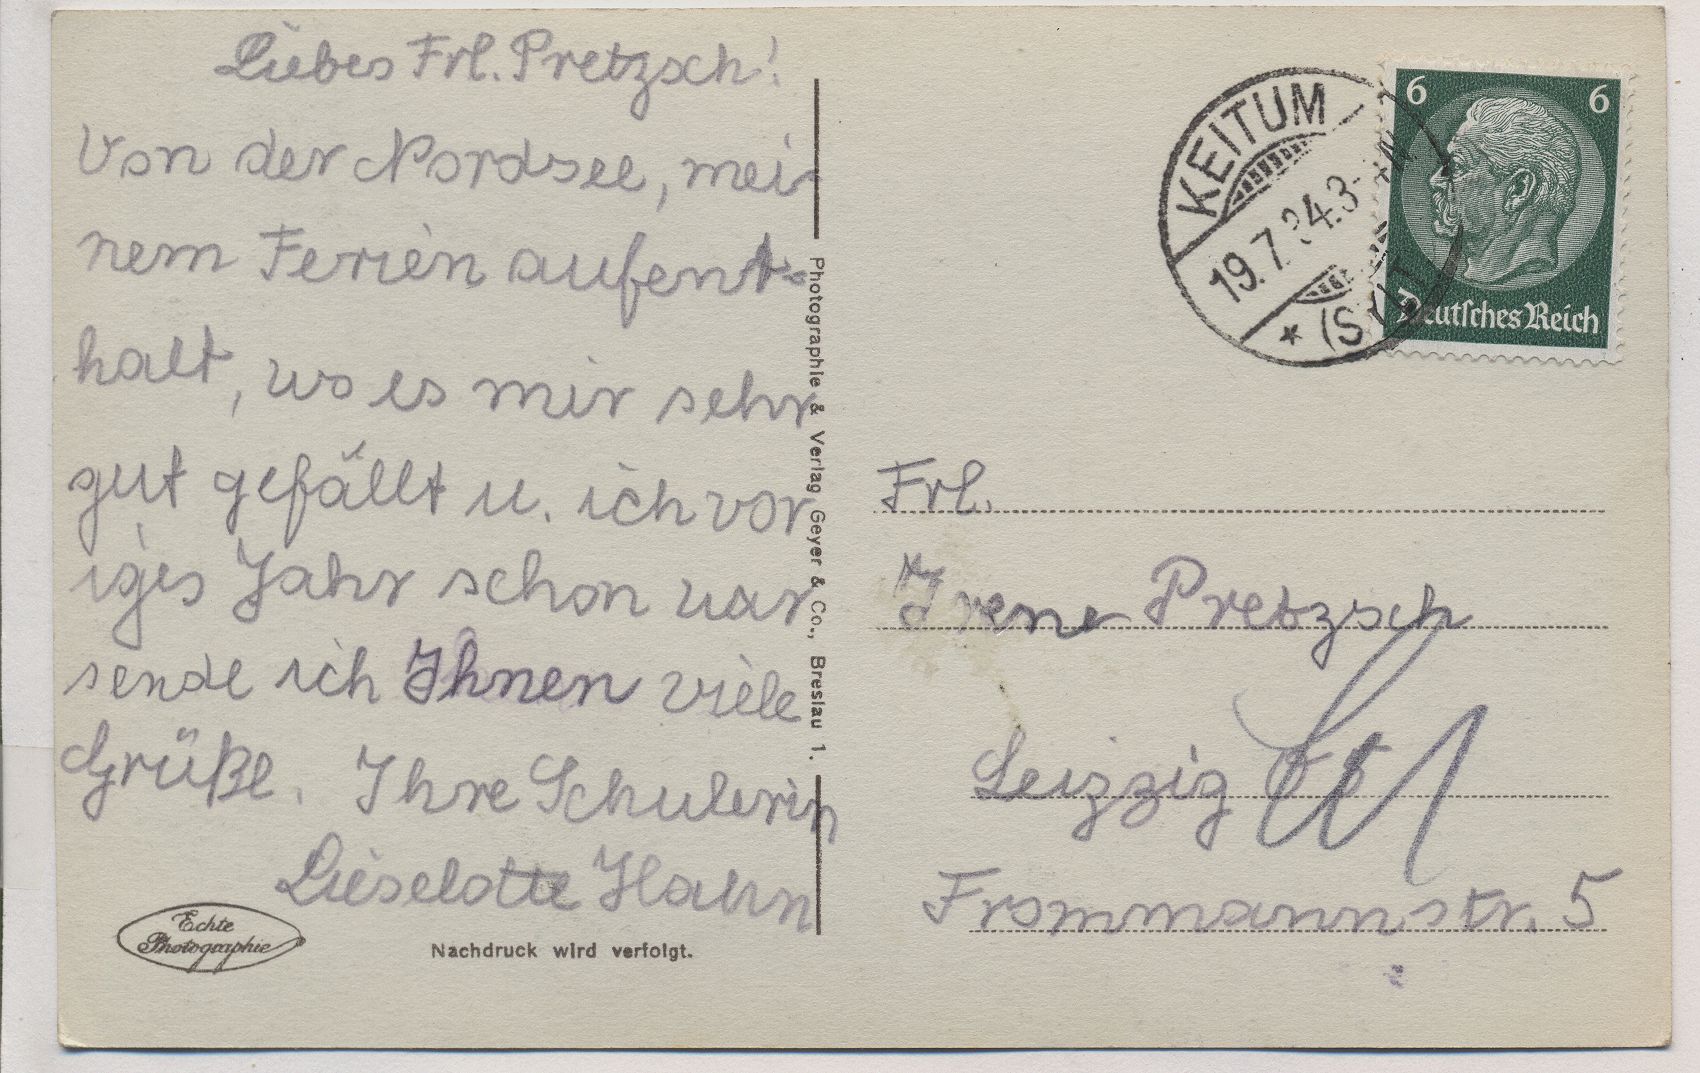 Liebes Frl. Pretzsch!
Von der Nordsee, mei-
nem Ferien aufent-
halt, wo es mir sehr
gut gefällt u. ich vor
iges Jahr schon war
sende ich Ihnen viele
Grüße. Ihre Schulerin
Lieselotte Hahn
Echte
Photographie
Nachdruck wird verfolgt.
Photographie & Verlag Geyer & Co., Breslau 1.
KEITUM
19.7.34.3-4
* (SYLT)
6 6
Deutsches Reich
Frl.
Irene Pretzsch
Leipzig
Frommannstr. 5